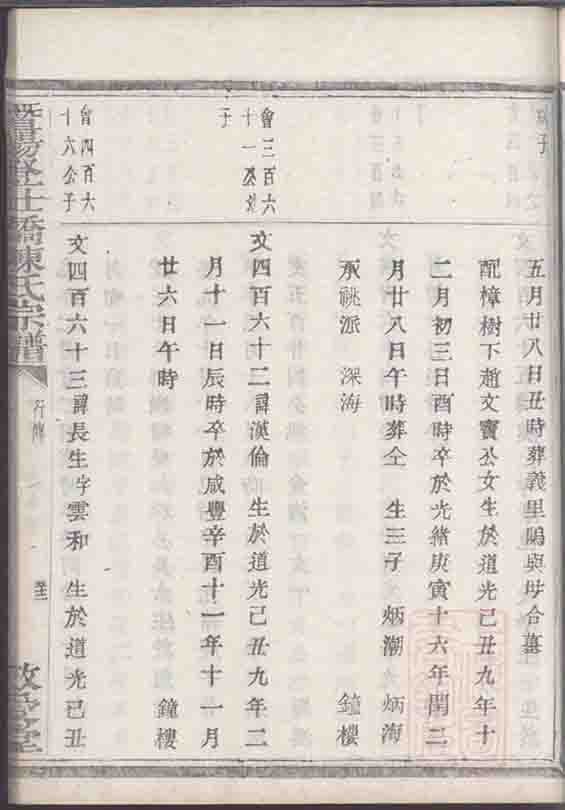 五月廿八日丑時葬義里塢與母合墓
配樟樹下趙文寶公女生於道光己丑九年十
二月初三日酉時卒於光緒庚寅十六年閏二
月廿八日午時葬仝 生三子 炳潮 炳海
承祧派 深海 鐘樓
會三百六
十一公次
子
文四百六十二諱漢倫 生於道光己丑九年二
月十一日辰時卒於咸豐辛酉十一年十一月
廿六日午時 鐘樓
曾四百六
十六公子
文四百六十三諱長生字雲和 生於道光己丑
暨陽 仕橋陳氏宗譜
行傳